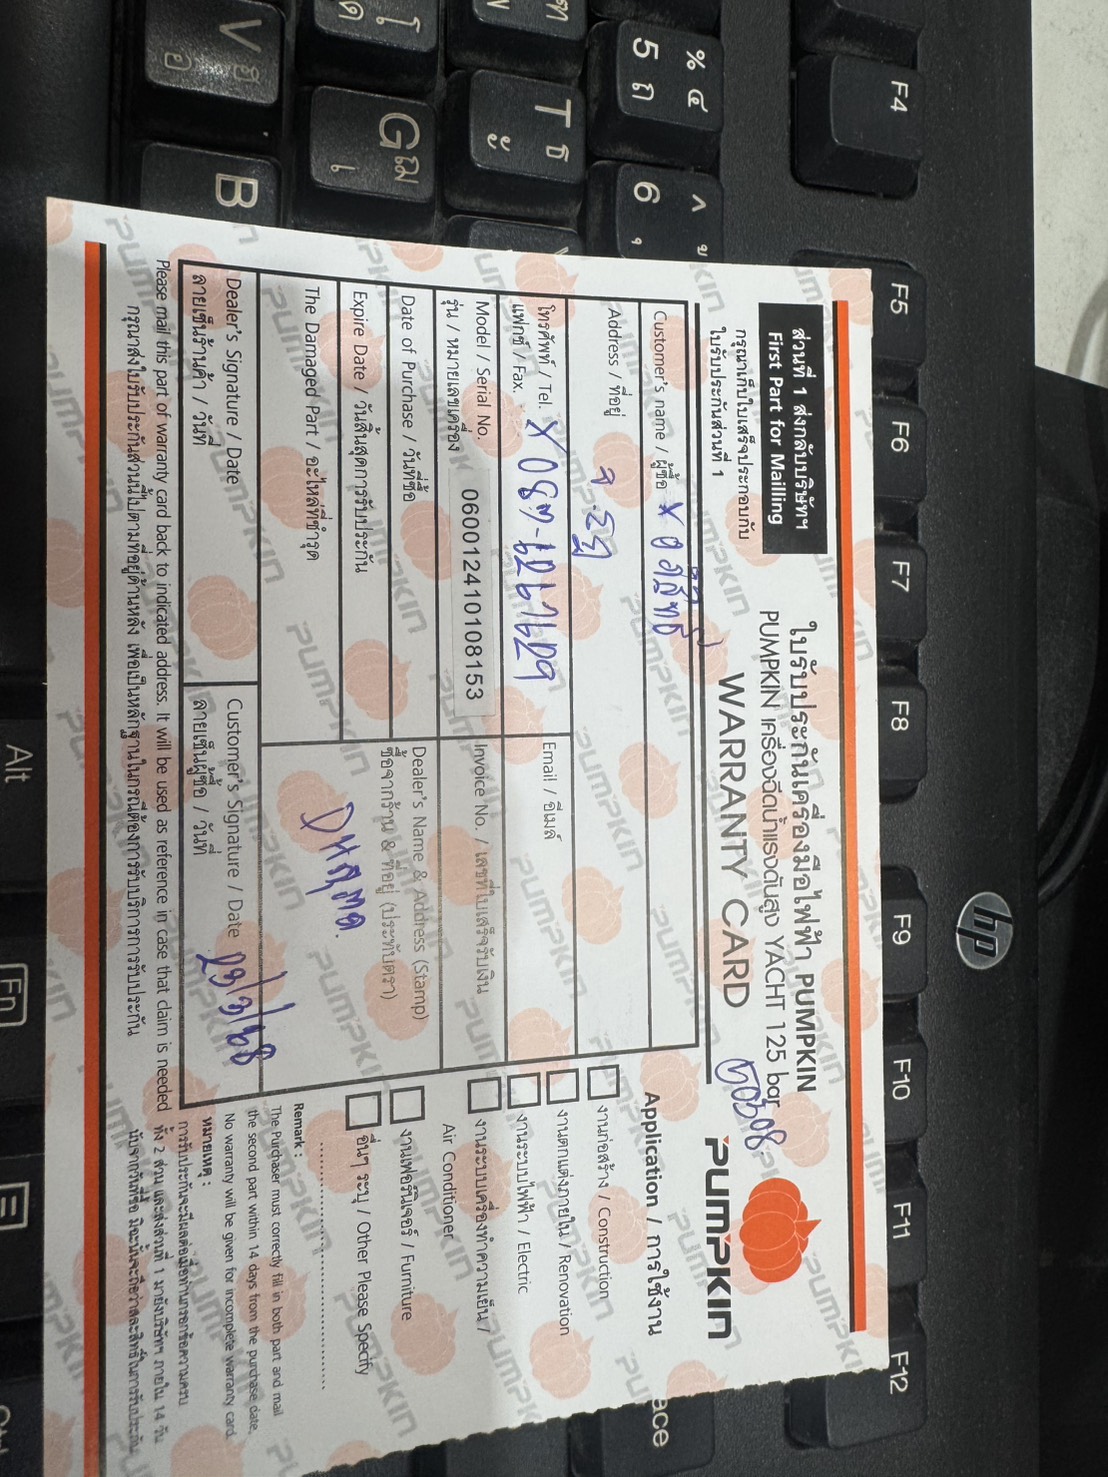 ส่วนที่ 1 ส่งกลับบริษัทฯ
First Part for Mailling
กรุณาเก็บใบเสร็จประกอบกับ
ใบรับประกันส่วนที่ 1
ใบรับประกันเครื่องมือไฟฟ้า PUMPKIN
PUMPKIN เครื่องฉีดน้ำแรงดันสูง YACHT 125 bar
WARRANTY CARD
50308
PUMPKIN
Customer's name / ผู้ซื้อ X
Address / ที่อยู่
โทรศัพท์ / Tel. X
แฟกซ์ / Fax.
Email / อีเมล์
Model / Serial No.
รุ่น / หมายเลขเครื่อง
060012410108153
Invoice No. / เลขที่ใบเสร็จรับเงิน
Date of Purchase / วันที่ซื้อ
Expire Date / วันสิ้นสุดการรับประกัน
The Damaged Part / อะไหล่ที่ชำรุด
Dealer's Name & Address (Stamp)
ชื่อจากร้าน & ที่อยู่ (ประทับตรา)
Dealer's Signature / Date
ลายเซ็นร้านค้า / วันที่
Customer's Signature / Date
ลายเซ็นผู้ซื้อ / วันที่
29/3/68
Please mail this part of warranty card back to indicated address. It will be used as reference in case that claim is needed
กรุณาส่งใบรับประกันส่วนนี้ไปตามที่อยู่ด้านหลัง เพื่อเป็นหลักฐานในกรณีต้องการรับบริการการรับประกัน
Application / การใช้งาน
งานก่อสร้าง / Construction
งานตกแต่งภายใน / Renovation
งานระบบไฟฟ้า / Electric
งานระบบเครื่องทำความเย็น /
Air Conditioner
งานเฟอร์นิเจอร์ / Furniture
อื่นๆ ระบุ / Other Please Specify
Remark :
The Purchaser must correctly fill in both part and mail
the second part within 14 days from the purchase date,
No warranty will be given for incomplete warranty card.
หมายเหตุ :
การรับประกันจะมีผลต่อเมื่อท่านกรอกข้อความครบ
ทั้ง 2 ส่วน และส่งส่วนที่ 1 มายังบริษัทฯ ภายใน 14 วัน
นับจากวันที่ซื้อ มิฉะนั้นจะถือว่าสละสิทธิ์ในการรับประกัน
hp
F4
F5
F6
F7
F8
F9
F10
F11
F12
% ๔
5 ถ
6
T ธ
G ฌ
V
B
Alt
Fn